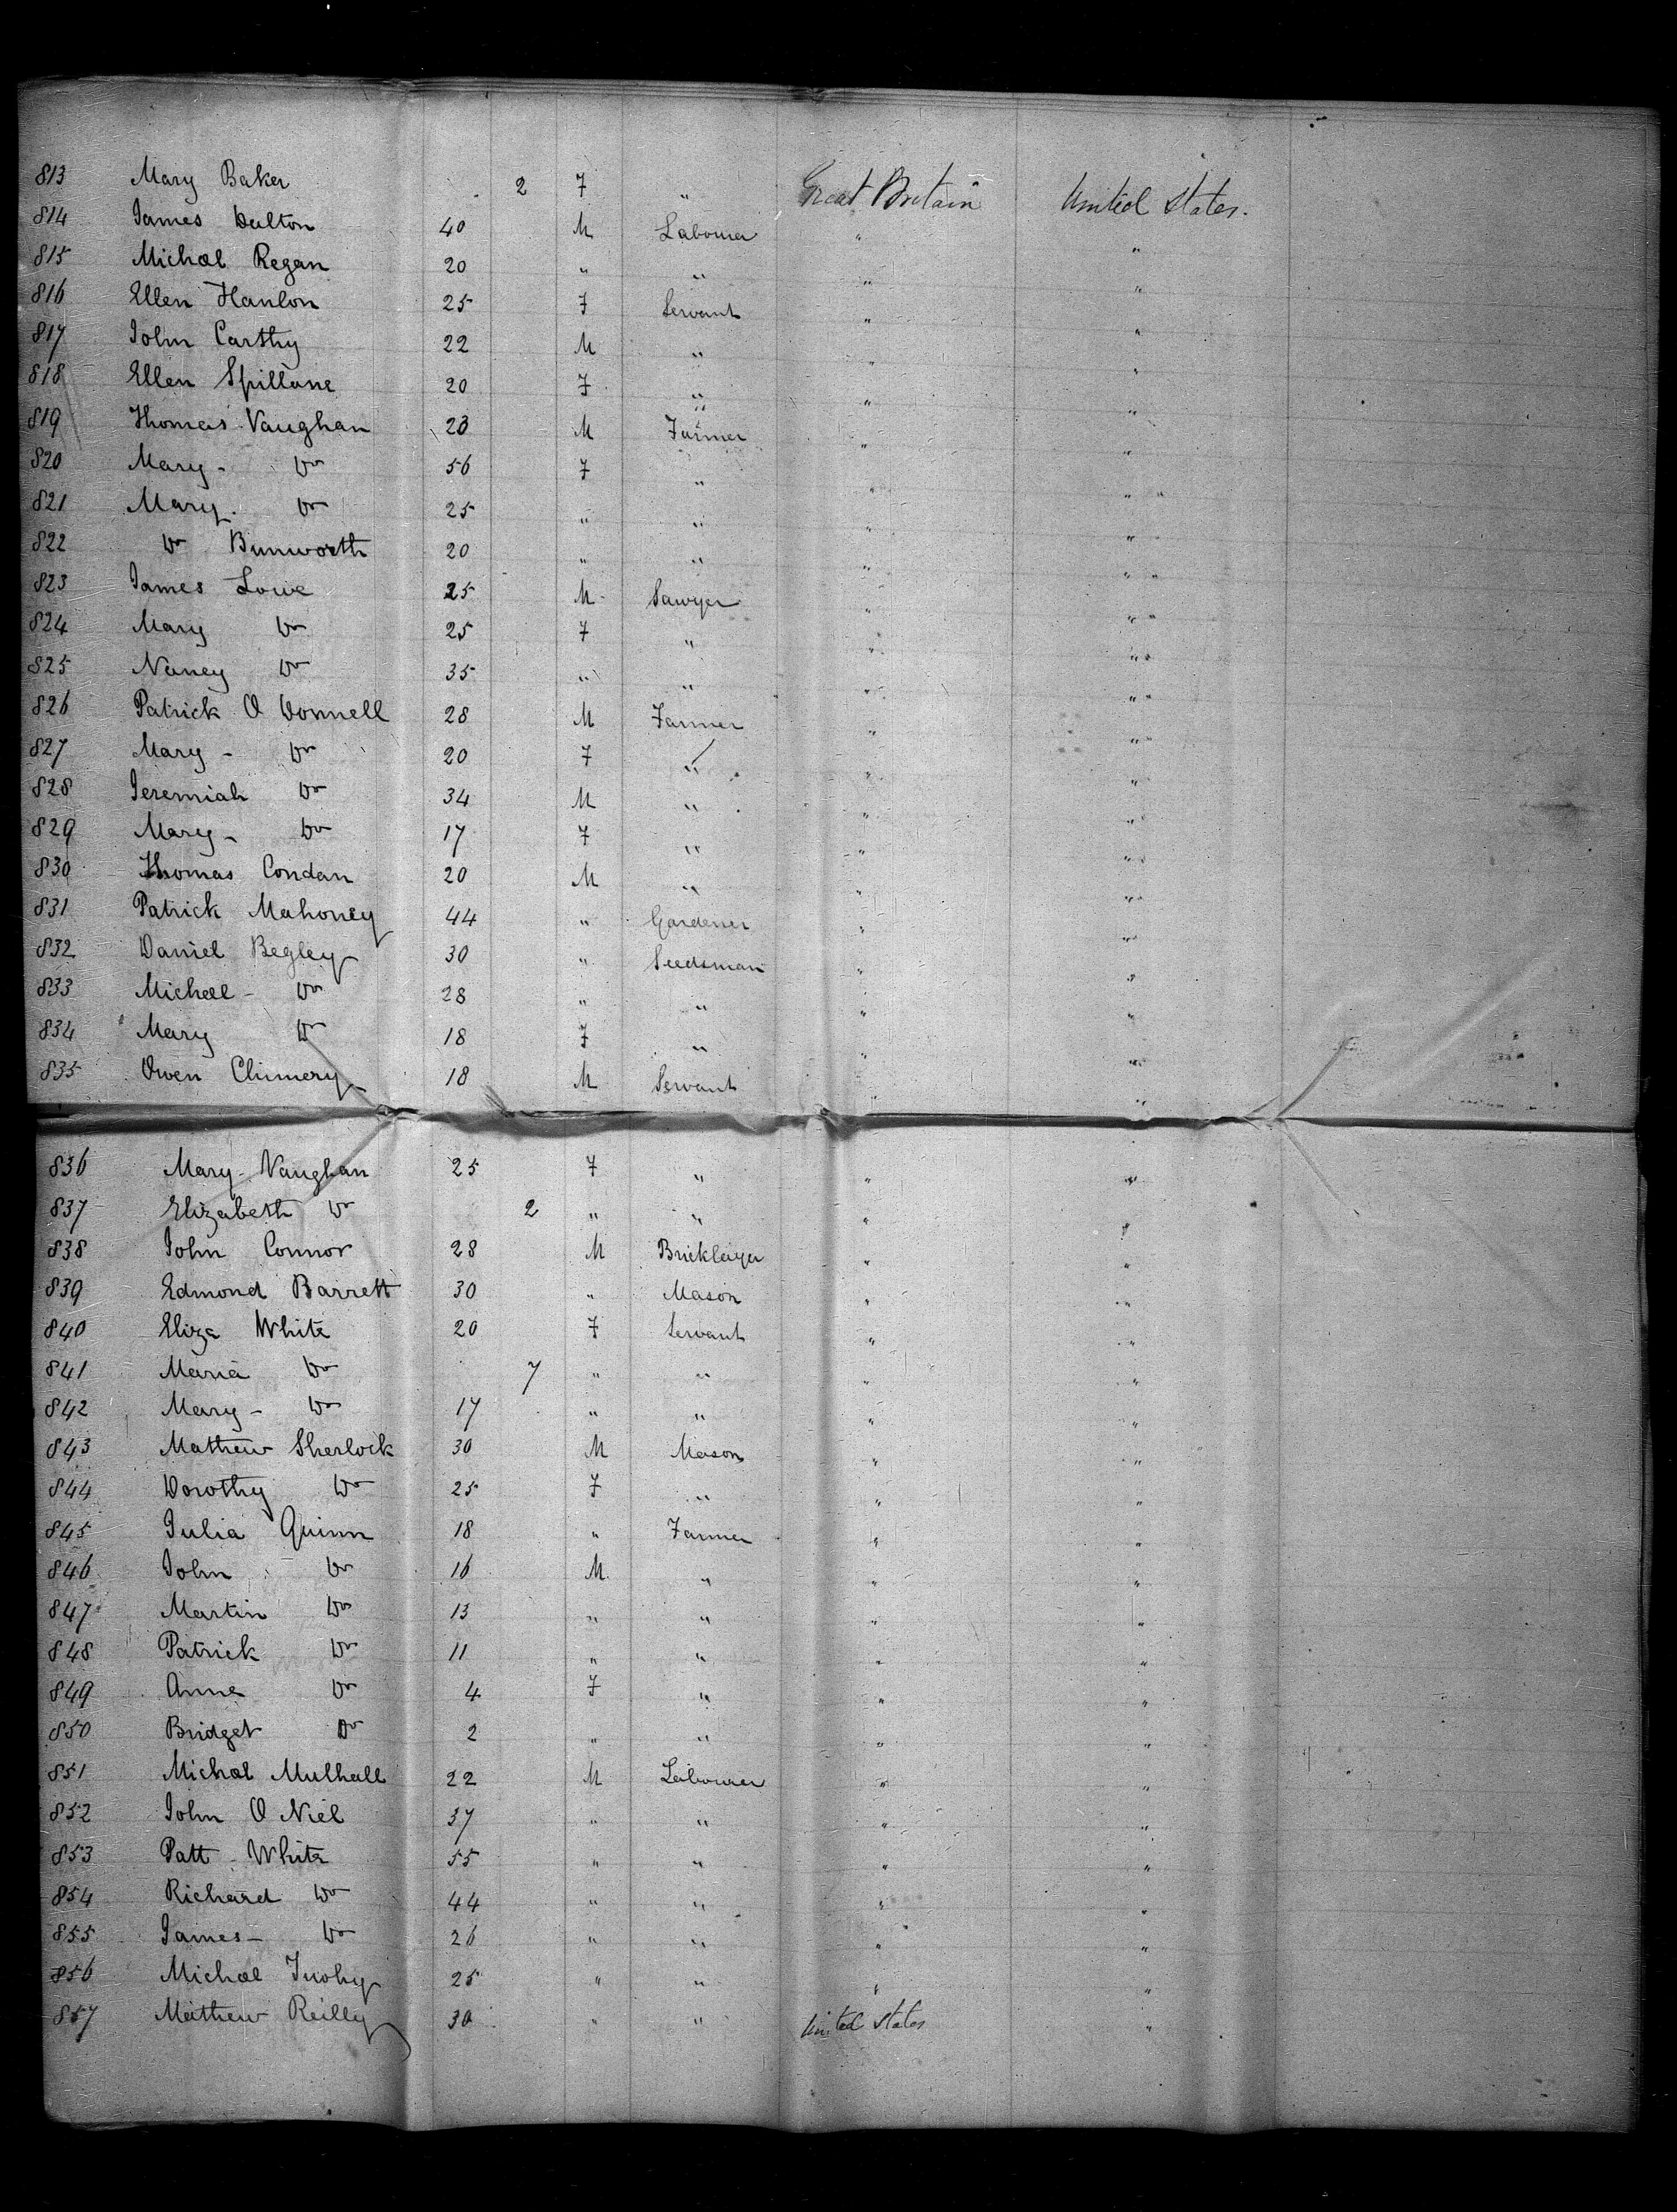 813 Mary Baker 2 F " Great Britain United States.
814 James Dalton 40 M Labourer " "
815 Michael Regan 20 " " " "
816 Ellen Hanlon 25 F Servant " "
817 John Carthy 22 M " " "
818 Ellen Spillane 20 F " " "
819 Thomas Vaughan 23 M Farmer " "
820 Mary - Do 56 F " " "
821 Mary. Do 25 " " " "
822 Do Bunworth 20 " " " "
823 James Lowe 25 M Sawyer " "
824 Mary Do 25 F " " "
825 Nancy Do 35 " " " "
826 Patrick O Donnell 28 M Farmer " "
827 Mary - Do 20 F " " "
828 Jeremiah Do 34 M " " "
829 Mary - Do 17 F " " "
830 Thomas Condan 20 M " " "
831 Patrick Mahoney 44 " Gardener " "
832 Daniel Begley 30 " Seedsman " "
833 Michael - Do 28 " " " "
834 Mary Do 18 F " " "
835 Owen Chimery 18 M Servant " "
836 Mary Vaughan 25 F " " "
837 Elizabeth Do 2 " " " "
838 John Connor 28 M Bricklayer " "
839 Edmond Barrett 30 " Mason " "
840 Eliza White 20 F Servant " "
841 Maria Do 7 " " " "
842 Mary - Do 17 " " " "
843 Mathew Sherlock 30 M Mason " "
844 Dorothy Do 25 F " " "
845 Julia Quinn 18 " Farmer " "
846 John Do 16 M " " "
847 Martin Do 13 " " " "
848 Patrick Do 11 " " " "
849 Anne Do 4 F " " "
850 Bridget Do 2 " " " "
851 Michael Mulhall 22 M Labourer " "
852 John O Niel 37 " " " "
853 Patt White 55 " " " "
854 Richard Do 44 " " " "
855 James - Do 26 " " " "
856 Michael Tuohy 25 " " " "
857 Mathew Reilly 30 " " United States "